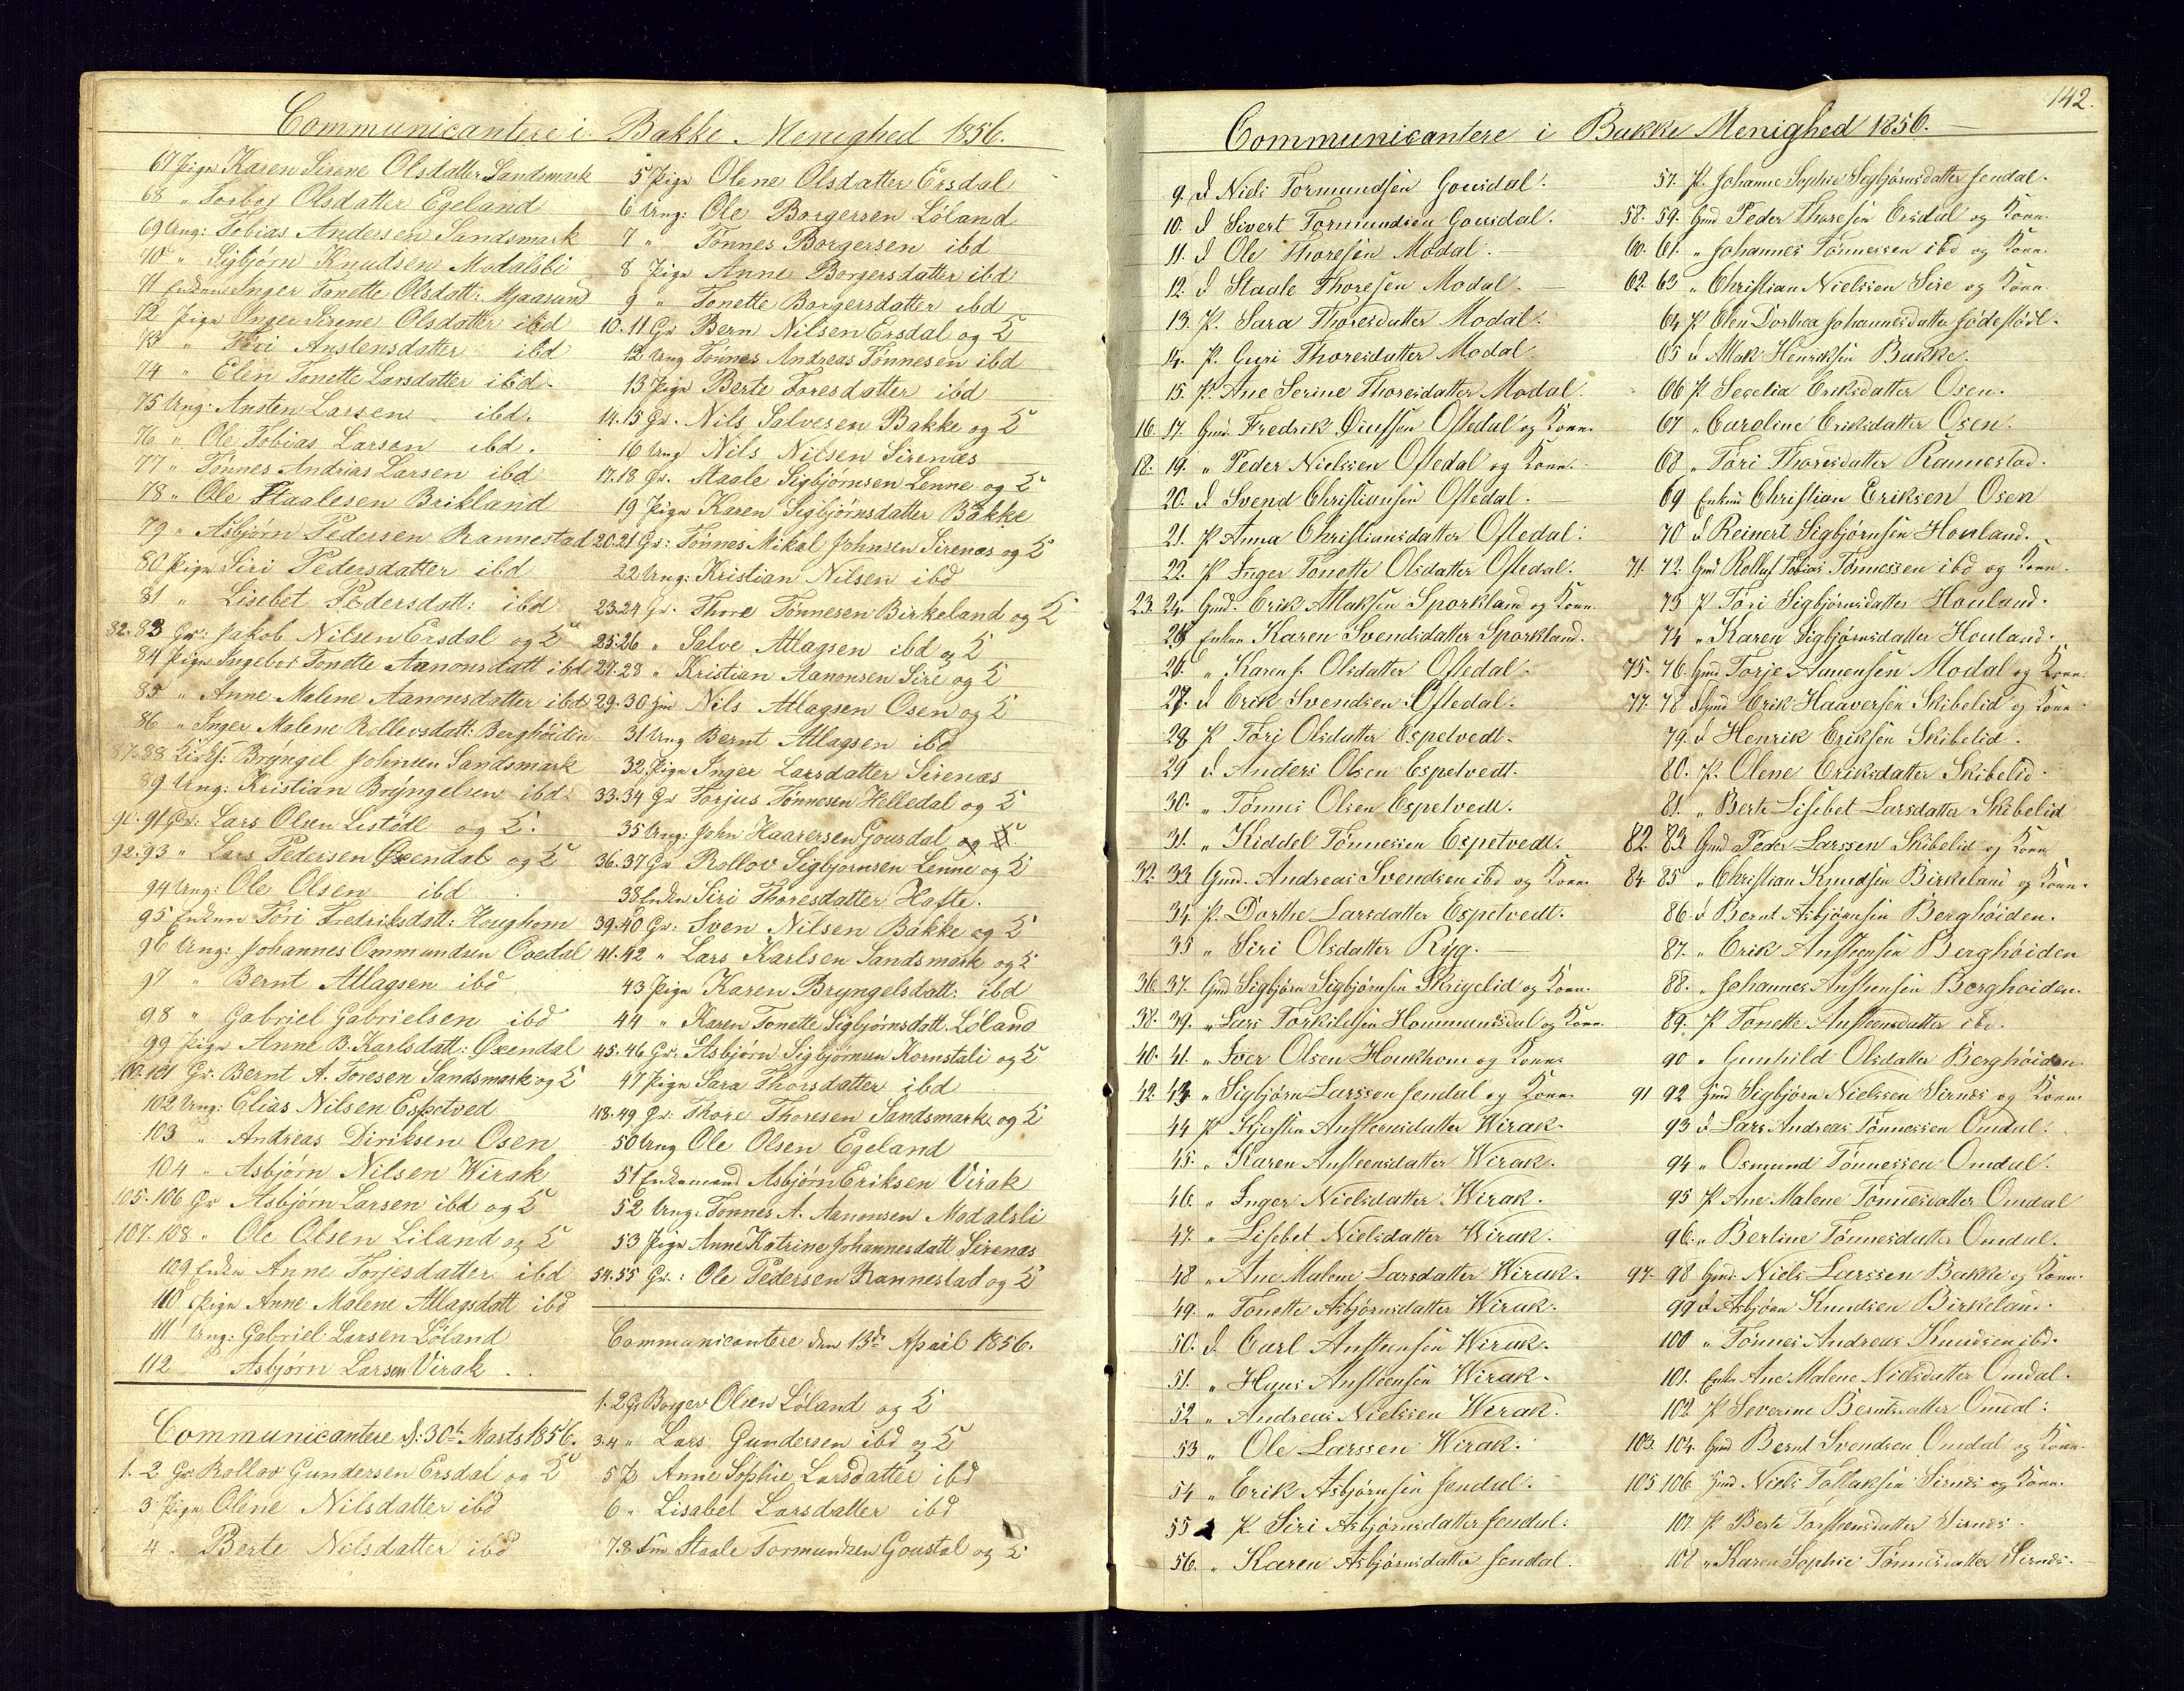 Communicantere i Bakke Menighed 1856.
67 Pigen Karen Sirene Olsdatter Sandsmark
68 " Torbor Olsdatter Egeland
69 Ung: Tobias Andersen Sandsmark
70 " Sigbjørn Knudsen Modalsli
71 Enken Inger Tonette Olsdatt: Mjaasund
72 Pigen Inger Sirene Olsdatter ibd
73 " Tori Anstensdatter ibd
74 " Elen Tonette Larsdatter ibd.
75 Ung: Ansten Larsen ibd.
76 " Ole Tobias Larsen ibd.
77 " Tönnes Andrias Larsen ibd
78 " Ole Staalesen Brikland
79 " Asbjørn Pedersen Rannestad
80 Pigen Siri Pedersdatter ibd
81 " Lisebet Pedersdatt: ibd
82.83 Gr: Jakob Nilsen Ersdal og K
84 Pigen Ingebor Tonette Aanonsdatt ibd
85 " Anne Malene Aanonsdatter ibd
86 " Inger Malene Rollevsdatt: Berghöiden
87.88 Bryngel Johnsen Sandsmark
89 Ung: Kristian Bryngelsen ibd.
90.91 Gr: Lars Olsen Listödl og K.
92.93 " Lars Pedersen Øxendal og K
94 Ung: Ole Olsen ibd
95 Enken Töri Fredriksdatt: Houghom
96 Ung: Johannes Ommundsen Ovedal
97 " Bernt Atlagsen ibd
98 " Gabriel Gabrielsen ibd
99 Pigen Anne B. Karlsdatt: Øxendal
100.101 Gr. Bernt A. Toresen Sandsmark og K
102 Ung: Elias Nilsen Espetved
103 " Andreas Diriksen Osen
104 " Asbjörn Nilsen Wirak
105.106 Gr Asbjørn Larsen ibd og K
107.108 " Ole Olsen Liland og K
109 Enken Anne Torjesdatter ibd
110 Pigen Anne Malene Atlagsdatt ibd
111 Ung: Gabriel Larsen Löland
112 Asbjørn Larsen Virak
Communicantere d: 30te Marts 1856.
1.2 Gr. Rollav Gundersen Ersdal og K
3 Pigen Oline Nilsdatter ibd
4 " Berte Nilsdatter ibd
5 Pigen Olene Olsdatter Ersdal
6 Ung: Ole Borgersen Löland
7 " Tönnes Borgersen ibd
8 Pigen Anne Borgersdatter ibd
9 " Tonette Borgersdatter ibd
10.11 Gr Bern Nilsen Ersdal og K
12 Ung Tönnes Andreas Tönnesen ibd
13 Pigen Berte Toresdatter ibd
14.15 Gr. Nils Salvesen Bakke og K
16 Ung Nils Nilsen Sirenæs
17.18 Gr. Staale Sigbjørnsen Lenne og K
19 Pigen Karen Sigbjørnsdatter Bakke
20.21 Gr: Tönnes Mikal Johnsen Sirenæs og K
22 Ung: Kristian Nilsen ibd
23.24 Gr. Thore Tönnesen Birkeland og K
25.26 " Salve Atlagsen ibd og K
27.28 " Kristian Aanonsen Siri og K
29.30 Gm Nils Atlagsen Osen og K
31 Ung Bernt Atlagsen ibd
32 Pigen Inger Larsdatter Sirenæs
33.34 Gr Torjus Tönnesen Helledal og K
35 Ung: John Haaversen Gousdal og K
36.37 Gr Rollov Sigbjørnsen Lenne og K
38 Enken Siri Thoresdatter Hafte.
39.40 Gr: Sven Nilsen Bakke og K
41.42 " Lars Karlsen Sandsmark og K
43 Pigen Karen Bryngelsdatt: ibd
44 " Karen Tonette Sigbjørnsdatt. Löland
45.46 Gr: Asbjørn Sigbjørnsen Kornstali og K
47 Pigen Sara Thorsdatter ibd
48.49 Gr: Thore Thoresen Sandsmark og K
50 Ung Ole Olsen Egeland
51 Enkemand Asbjørn Eriksen Virak
52 Ung: Tonnes A. Aanonsen Modalsli
53 Pigen Anne Katrine Johannesdatt Sirenæs
54.55 Gr.: Ole Pedersen Rannestad og K
Communicantere den 13de April 1856.
1.2 Gr Borger Olsen Löland og K
3.4 " Lars Gundersen ibd og K
5 P Anne Sophie Larsdatter ibd
6 " Lisabel Larsdatter ibd
7.8 Gm Staale Tormundsen Goustal og K
142.
Communicantere i Bakke Menighed 1856.
9. U Niels Tormundsen Gousdal.
10. U Sivert Tormundsen Gousdal.
11. U Ole Thoresen Modal.
12. U Staale Thoresen Modal.
13. P. Sara Thoresdatter Modal.
14. P. Guri Thoresdatter Modal.
15. P. Ane Serine Thoresdatter Modal.
16. 17. Gmd. Fredrik Oftedal og Kone.
18. 19. " Peder Nielssen Oftedal og Kone.
20. U Svend Christiansen Oftedal.
21. P Anna Christiansdatter Oftedal.
22. P Inger Tonette Olsdatter Oftedal.
23. 24. Gmd. Erik Atlaksen Sporkland og Kone.
25 Enken Karen Svendsdatter Sporkland.
26. " Karen Olsdatter Oftedal.
27. U Erik Svendsen Oftedal.
28 P Töri Olsdatter Espetvedt.
29 U Anders Olsen Espetvedt.
30. " Tönnes Olsen Espetvedt.
31. " Kiddel Tönnessen Espetvedt.
32. 33 Gmd. Andreas Svendsen ibd og Kone.
34 P. Dorthe Larsdatter Espetvedt.
35 " Siri Olsdatter Ryg.
36 37. Gmd Sigbjørn Sigbjørnsen Skrigelid og Kone.
38. 39. " Lars Torkildsen Hommansdal og Kone.
40. 41. " Iver Olsen Houkhom og Kone.
42. 43 " Sigbjørn Larssen Jendal og Kone.
44 P Kjersten Anstensdatter Wirak.
45. " Karen Anstensdatter Wirak.
46. " Inger Nielsdatter Wirak.
47. " Lisebet Nielsdatter Wirak.
48 " Ane Malene Larsdatter Wirak.
49. " Tonette Asbjørnsdatter Wirak.
50. U Carl Anstensen Wirak.
51. " Hans Anstensen Wirak.
52 " Andreas Nielssen Wirak.
53 " Ole Larssen Wirak.
54 " Erik Asbjørnsen Jendal.
55 P. Siri Asbjørnsdatter Jendal.
56. " Karen Asbjørnsdatter Jendal.
57. P. Johanne Sophie Sigbjørnsdatter Jendal.
58. 59. Gmd Peder Thoresen Ersdal og Kone.
60. 61. " Johannes Tönnessen ibd og Kone.
62. 63 " Christian Nielssen Sire og Kone.
64 P Elen Dorthea Johannesdatter
65 U Atlak Henriksen Bakke.
66 P Secelia Eriksdatter Osen.
67 " Caroline Eriksdatter Osen.
68 " Töri Thoresdatter Rannestad.
69 Enkemd Christian Eriksen Osen
70 U Reinert Sigbjørnsen Houland.
71. 72. Gmd Rolluf Tobias Tönnessen ibd og Kone.
73 P Töri Sigbjørnsdatter Houland.
74 " Karen Sigbjørnsdatter Houland.
75. 76 Gmd Torje Aanensen Modal og Kone.
77. 78 Gmd Erik Haaversen Skibelid og Kone.
79. U Henrik Eriksen Skibelid.
80. P. Olene Eriksdatter Skibelid.
81. " Berte Lisebet Larsdatter Skibelid
82. 83 Gmd Peder Larssen Skibelid og Kone
84. 85 " Christian Knudsen Birkeland og Kone.
86. U Bernt Asbjørnsen Berghöiden.
87. " Erik Anstensen Berghöiden
88. " Johannes Anstensen Berghöiden.
89. P Tonette Anstensdatter ibd.
90 " Gunhild Olsdatter Berghöiden.
91 92 Gmd Sigbjørn Nielssen Sirnæs og Kone.
93 U Lars Andreas Tönnessen Omdal.
94 " Osmund Tönnessen Omdal.
95 P Ane Malene Tönnesdatter Omdal
96. " Bertine Tönnesdatter Omdal.
97. 98 Gmd. Niels Larssen Bakke og Kone.
99 U Asbjørn Knudsen Birkeland.
100 " Tönnes Andreas Knudsen ibd.
101. Enke Ane Malene Nielsdatter Omdal.
102 P Severine Berntsdatter Omdal.
103. 104. Gmd Bernt Svendsen Omdal og Kone.
105 106 Gmd Niels Tollaksen Sirnæs og Kone.
107. P Berte Torstensdatter Sirnæs.
108 " Karen Sophie Tönnesdatter Sirnæs.